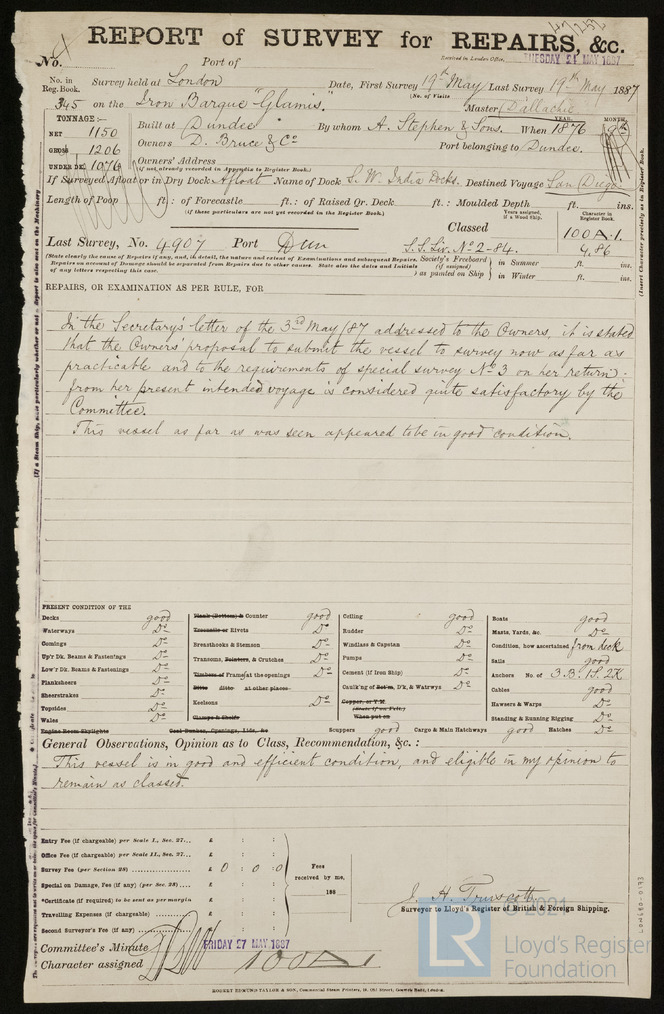 47252
REPORT of SURVEY for REPAIRS, &c.
No. Port of Received in London Office, TUESDAY 21 MAY 1887
No. in Reg. Book. Survey held at London Date, First Survey 19th May Last Survey 19th May 1887
(No. of Visits
345 on the Iron Barque "Glamis." Master Dallachie
TONNAGE:— Built at Dundee By whom A. Stephen & Sons. When 1876
YEAR. MONTH.
NET 1150
GROSS 1206 Owners D. Bruce & Co Port belonging to Dundee.
UNDER DK. 1076 Owners' Address
(if not already recorded in Appendix to Register Book.)
If Surveyed Afloat or in Dry Dock Afloat Name of Dock S. W. India Docks. Destined Voyage San Diego
Length of Poop ft.: of Forecastle ft.: of Raised Qr. Deck ft.: Moulded Depth ft. ins.
(if these particulars are not yet recorded in the Register Book.)
Years assigned, if a Wood Ship. Character in Register Book.
Classed 100A.1.
Last Survey, No. 4907 Port Dun S.S. Liv. No 2-84. 4,86
(State clearly the cause of Repairs if any, and, in detail, the nature and extent of Examinations and subsequent Repairs. Repairs on account of Damage should be separated from Repairs due to other causes. State also the dates and Initials of any letters respecting this case.
Society's Freeboard (if assigned) as painted on Ship } in Summer ft. ins.
in Winter ft. ins.
(Insert Character precisely as in Register Book.)
REPAIRS, OR EXAMINATION AS PER RULE, FOR
In the Secretary's letter of the 3rd May/87 addressed to the Owners, it is stated
that the Owners' proposal to submit the vessel to survey now as far as
practicable and to the requirements of special survey No 3 on her return
from her present intended voyage is considered quite satisfactory by the
Committee.
This vessel as far as was seen appeared to be in good condition.
PRESENT CONDITION OF THE
Decks good
Waterways Do
Comings Do
Up'r Dk. Beams & Fastenings Do
Low'r Dk. Beams & Fastenings Do
Planksheers Do
Sheerstrakes Do
Topsides Do
Wales Do
Engine Room Skylights
Plank (Bottom) & Counter good
Treenails or Rivets Do
Breasthooks & Stemson Do
Transoms, Pointers, & Crutches Do
Timbers of Frames at the openings Do
Ditto ditto at other places
Keelsons Do
Clamps & Shelfs
Coal Bunker, Openings, Lids, &c.
Ceiling good
Rudder Do
Windlass & Capstan Do
Pumps Do
Cement (if Iron Ship) Do
Caulk'ng of Bot'm, D'k, & Watrwys Do
Copper, or Y.M.
(State if on Felt.)
When put on
Scuppers good Cargo & Main Hatchways good Hatches Do
Boats good
Masts, Yards, &c. Do
Condition, how ascertained from deck
Sails good
Anchors No. of 3.B. 1S. 2K
Cables good
Hawsers & Warps Do
Standing & Running Rigging Do
General Observations, Opinion as to Class, Recommendation, &c. :
This vessel is in good and efficient condition, and eligible in my opinion to
remain as classed.
Entry Fee (if chargeable) per Scale I., Sec. 27... £ : :
Office Fee (if chargeable) per Scale II., Sec. 27... £ : :
Survey Fee (per Section 28) £ 0 : 0 : 0
Special on Damage, Fee (if any) (per Sec. 28) £ : :
*Certificate (if required) to be sent as per margin £ : :
Travelling Expenses (if chargeable) £ : :
Second Surveyor's Fee (if any) £ : :
Fees received by me,
188
J. H. Truscott
Surveyor to Lloyd's Register of British & Foreign Shipping.
Committee's Minute FRIDAY 27 MAY 1887
Character assigned 100A1
© 2021
LR
Lloyd's Register
Foundation
LON680-0193